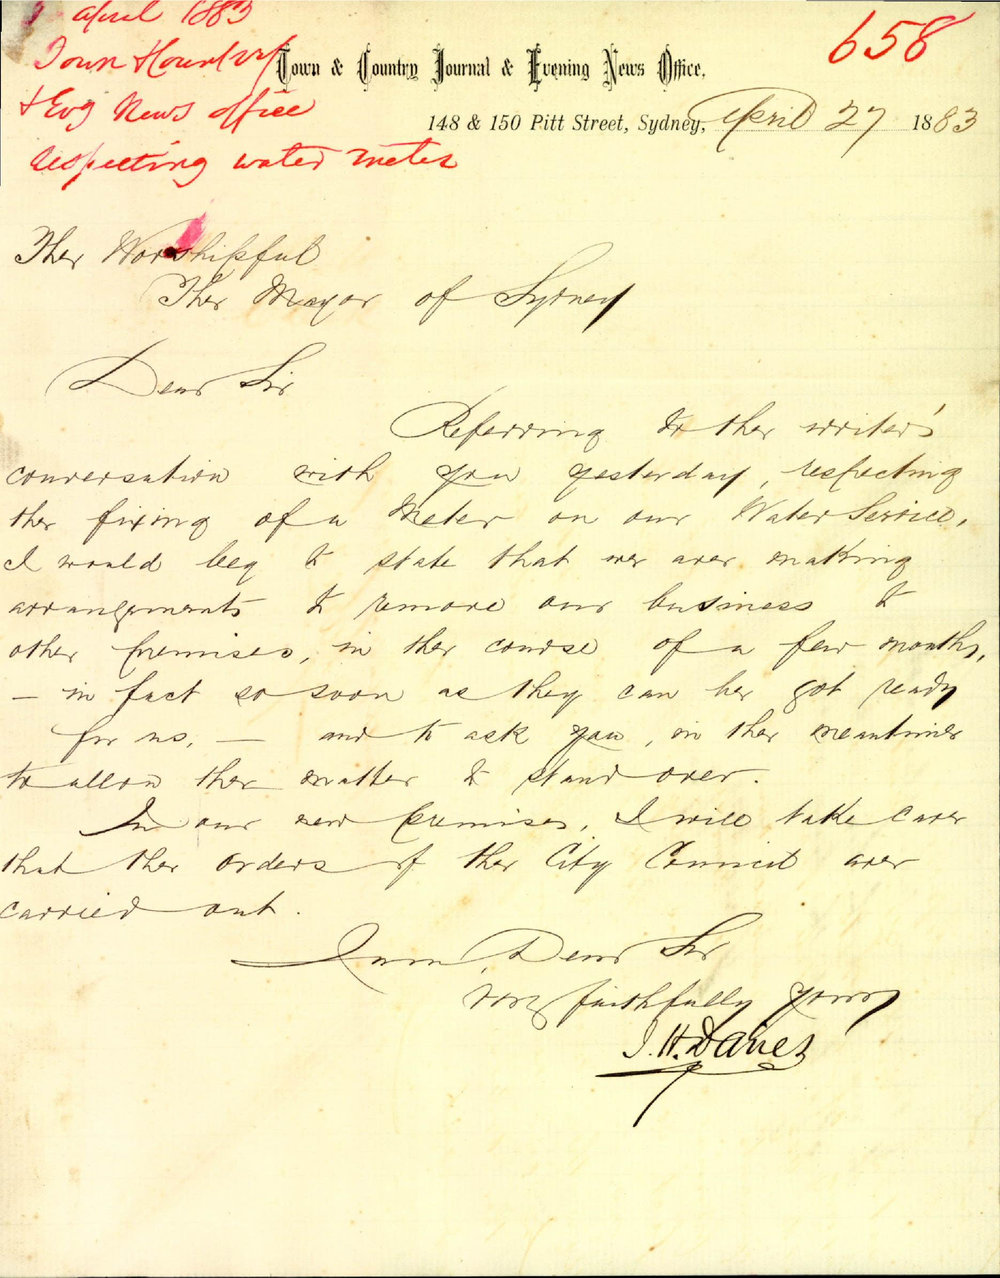 April 1883
Town & Country
& Evg News office
respecting water meter
658
Town & Country Journal & Evening News Office,
148 & 150 Pitt Street, Sydney, April 27 1883
The Worshipful
The Mayor of Sydney
Dear Sir
Referring to the writer's
conversation with you yesterday, respecting
the fixing of a Meter on our Water Service,
I would beg to state that we are making
arrangements to remove our business to
other premises, in the course of a few months,
— in fact so soon as they can be got ready
for us, — and to ask you, in the meantime
to allow the matter to stand over.
In our new premises, I will take care
that the orders of the City Council are
carried out.
I am, Dear Sir
Very faithfully yours
J. H. Davies